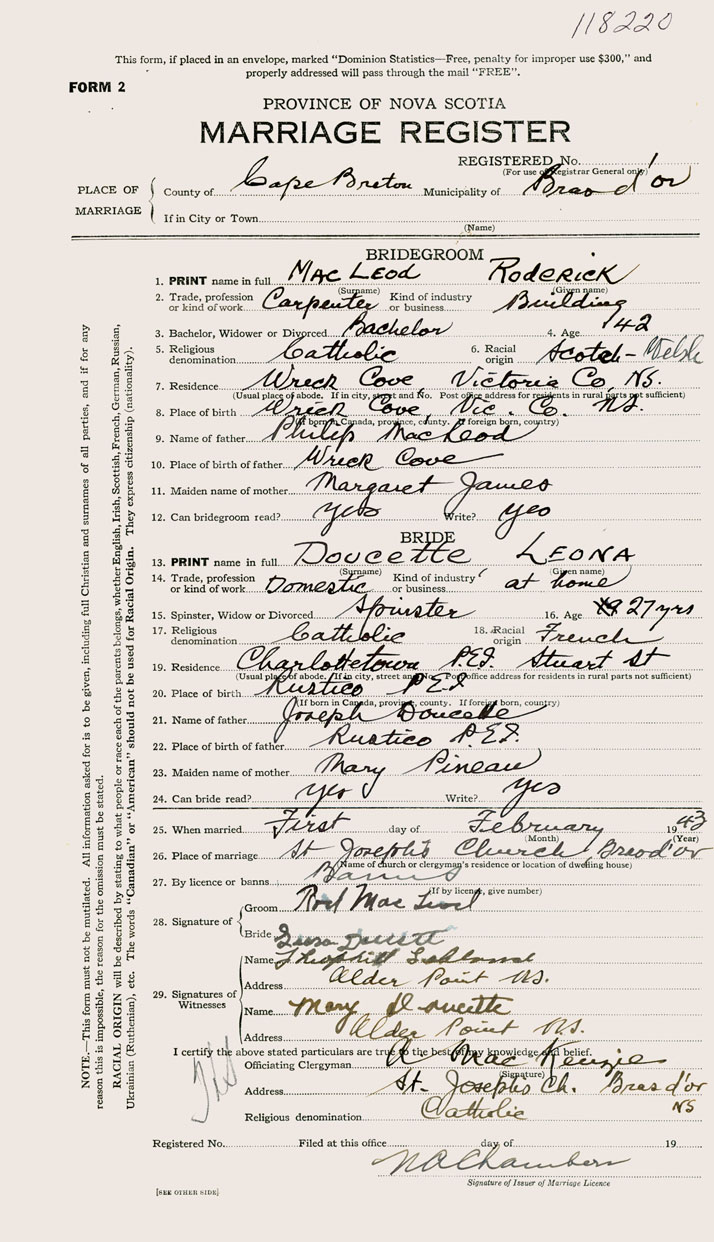 118220
This form, if placed in an envelope, marked "Dominion Statistics—Free, penalty for improper use $300," and
properly addressed will pass through the mail "FREE".
FORM 2
PROVINCE OF NOVA SCOTIA
MARRIAGE REGISTER
REGISTERED No.
(For use of Registrar General only)
PLACE OF MARRIAGE
County of Cape Breton Municipality of Bras d'or
If in City or Town
(Name)
BRIDEGROOM
1. PRINT name in full MacLeod Roderick
(Surname) (Given name)
2. Trade, profession or kind of work Carpenter Kind of industry or business Building
3. Bachelor, Widower or Divorced Bachelor 4. Age 42
5. Religious denomination Catholic 6. Racial origin Scotch - Welsh
7. Residence Wreck Cove, Victoria Co, NS.
(Usual place of abode. If in city, street and No. Post office address for residents in rural parts not sufficient)
8. Place of birth Wreck Cove, Vic. Co. NS.
(If born in Canada, province, county. If foreign born, country)
9. Name of father Philip MacLeod
10. Place of birth of father Wreck Cove
11. Maiden name of mother Margaret James
12. Can bridegroom read? yes Write? yes
BRIDE
13. PRINT name in full Doucette Leona
(Surname) (Given name)
14. Trade, profession or kind of work Domestic Kind of industry or business at home
15. Spinster, Widow or Divorced Spinster 16. Age 27 yrs
17. Religious denomination Catholic 18. Racial origin French
19. Residence Charlottetown P.E.I. Stuart St
(Usual place of abode. If in city, street and No. Post office address for residents in rural parts not sufficient)
20. Place of birth Rustico P.E.I
(If born in Canada, province, county. If foreign born, country)
21. Name of father Joseph Doucette
22. Place of birth of father Rustico P.E.I.
23. Maiden name of mother Mary Pineau
24. Can bride read? yes Write? yes
25. When married First day of February 1943
(Month) (Year)
26. Place of marriage St Joseph's Church, Bras d'or
(Name of church or clergyman's residence or location of dwelling house)
27. By licence or banns Banns
(If by licence, give number)
28. Signature of
Groom Rod MacLeod
Bride Doucette
29. Signatures of Witnesses
Name
Address Alder Point N.S.
Name Mary Doucette
Address Alder Point N.S.
I certify the above stated particulars are true to the best of my knowledge and belief.
Officiating Clergyman A. MacKenzie
(Signature)
Address St. Joseph's Ch. Bras d'or NS
Religious denomination Catholic
Registered No. Filed at this office day of 19
Chambers
Signature of Issuer of Marriage Licence
[SEE OTHER SIDE]
NOTE.—This form must not be mutilated. All information asked for is to be given, including full Christian and surnames of all parties, and if for any
reason this is impossible, the reason for the omission must be stated.
RACIAL ORIGIN will be described by stating to what people or race each of the parents belongs, whether English, Irish, Scottish, French, German, Russian,
Ukrainian (Ruthenian), etc. The words "Canadian" or "American" should not be used for Racial Origin. They express citizenship (nationality).